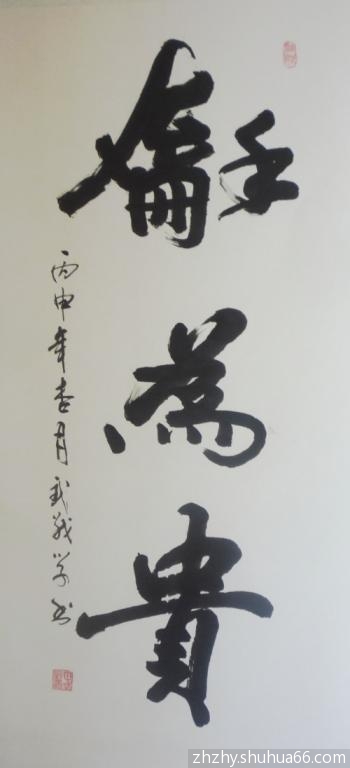 龢為貴
丙申年杏月武战学书
zhzhy.shuhua66.com